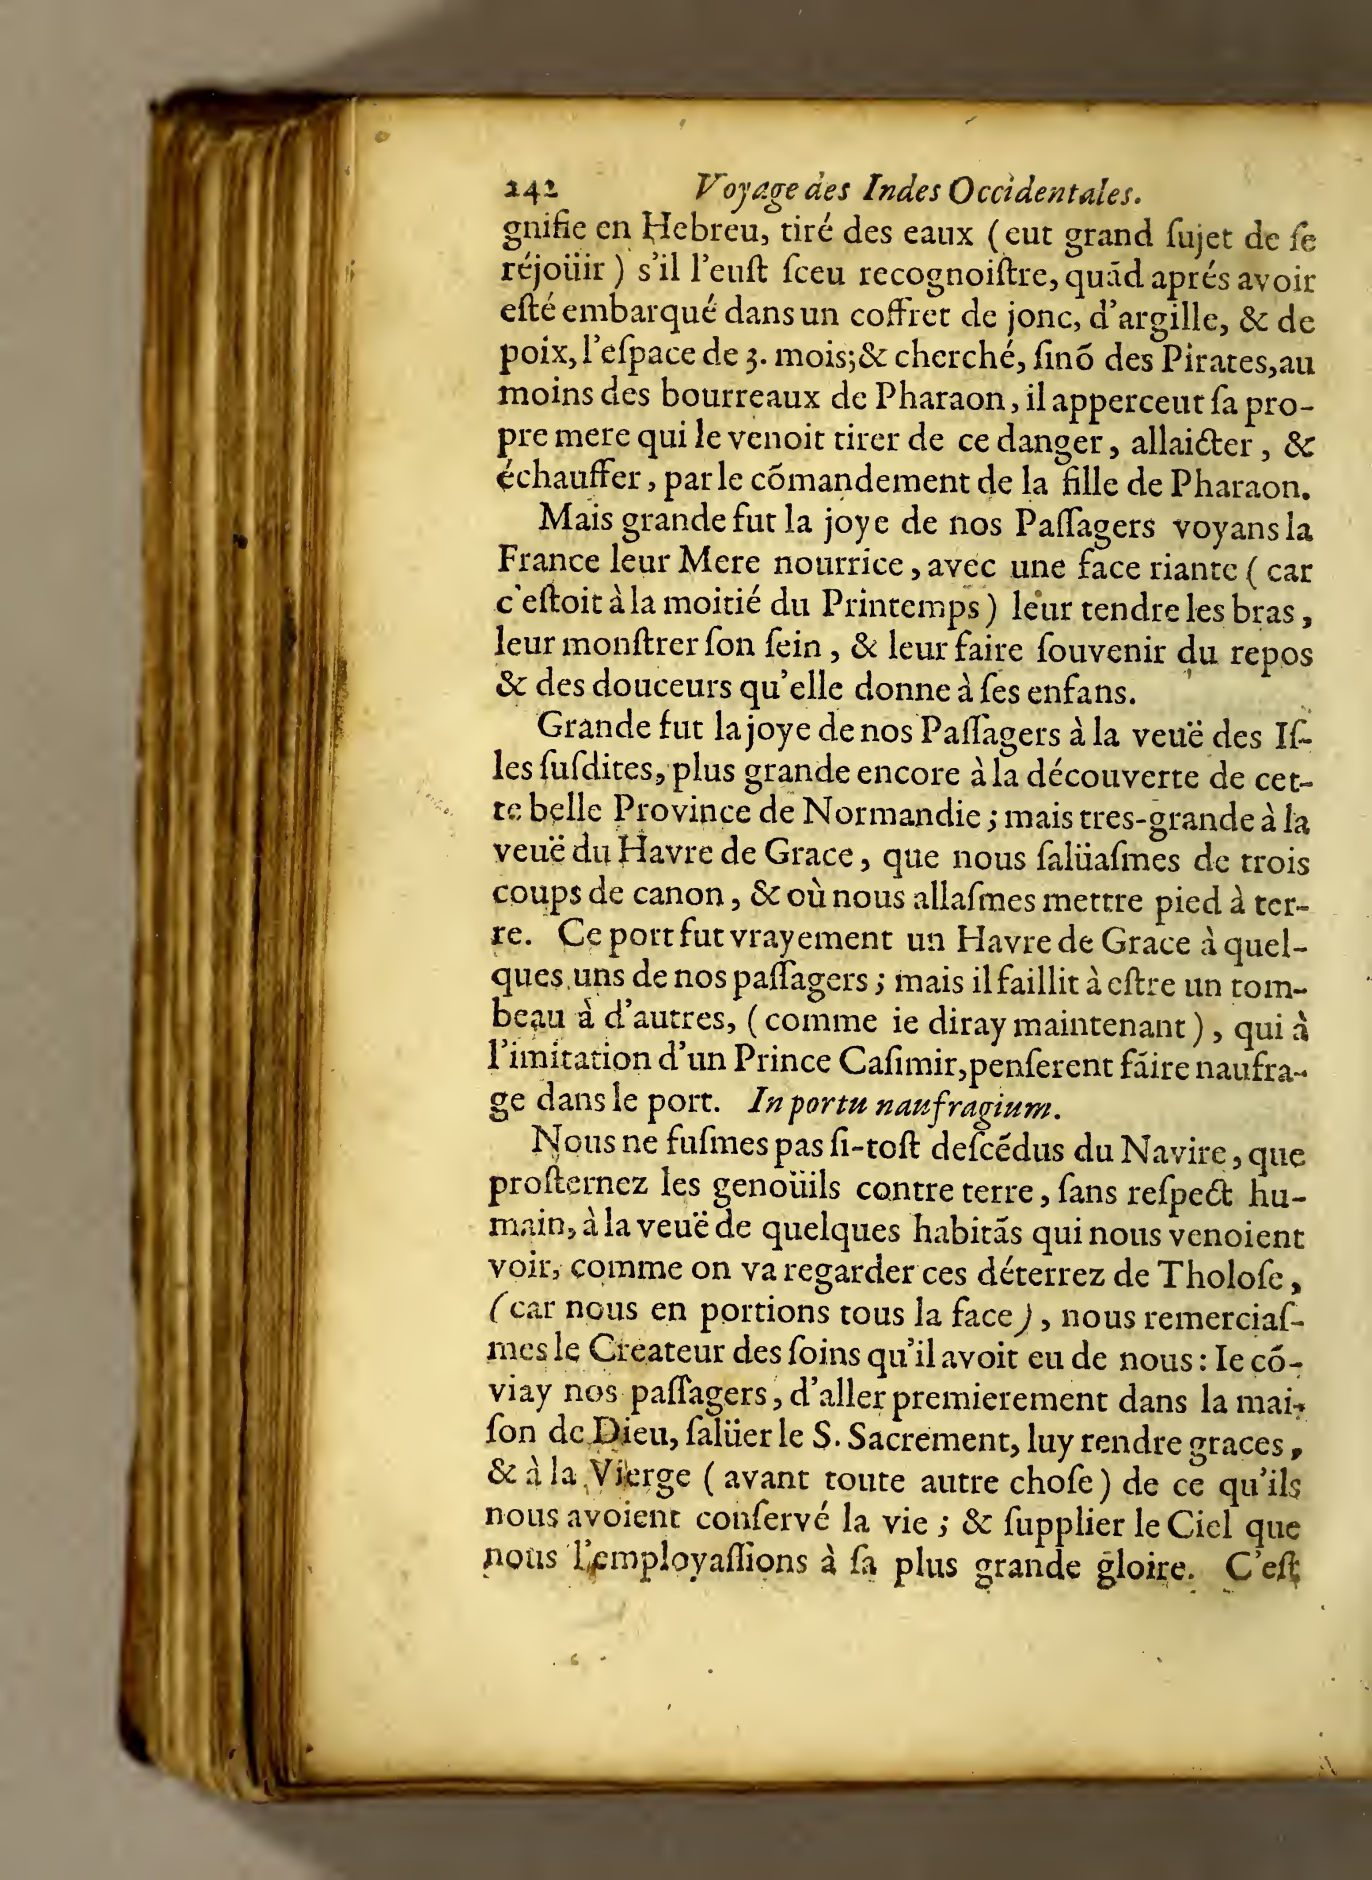 242 Voyage des Indes Occidentales.
gnifie en Hebreu, tiré des eaux (eut grand ſujet de ſe
réjoüir) s'il l'euſt ſceu recognoiſtre, quãd aprés avoir
eſté embarqué dans un coffret de jonc, d'argille, & de
poix, l'eſpace de 3. mois; & cherché, ſinõ des Pirates, au
moins des bourreaux de Pharaon, il apperceut ſa pro-
pre mere qui le venoit tirer de ce danger, allaicter, &
échauffer, par le cõmandement de la fille de Pharaon.
Mais grande fut la joye de nos Paſſagers voyans la
France leur Mere nourrice, avec une face riante (car
c'eſtoit à la moitié du Printemps) leur tendre les bras,
leur monſtrer ſon ſein, & leur faire ſouvenir du repos
& des douceurs qu'elle donne à ſes enfans.
Grande fut la joye de nos Paſſagers à la veuë des Iſ-
les ſuſdites, plus grande encore à la découverte de cet-
te belle Province de Normandie; mais tres-grande à la
veuë du Havre de Grace, que nous ſalüaſmes de trois
coups de canon, & où nous allaſmes mettre pied à ter-
re. Ce port fut vrayement un Havre de Grace à quel-
ques uns de nos paſſagers; mais il faillit à eſtre un tom-
beau à d'autres, (comme ie diray maintenant), qui à
l'imitation d'un Prince Caſimir, penſerent faire naufra-
ge dans le port. In portu naufragium.
Nous ne fuſmes pas ſi-toſt deſcẽdus du Navire, que
proſternez les genoüils contre terre, ſans reſpect hu-
main, à la veuë de quelques habitãs qui nous venoient
voir, comme on va regarder ces déterrez de Tholoſe,
(car nous en portions tous la face), nous remerciaſ-
mes le Createur des ſoins qu'il avoit eu de nous: Ie cõ-
viay nos paſſagers, d'aller premierement dans la mai-
ſon de Dieu, ſalüer le S. Sacrement, luy rendre graces,
& à la Vierge (avant toute autre choſe) de ce qu'ils
nous avoient conſervé la vie; & ſupplier le Ciel que
nous l'employaſſions à ſa plus grande gloire. C'eſt